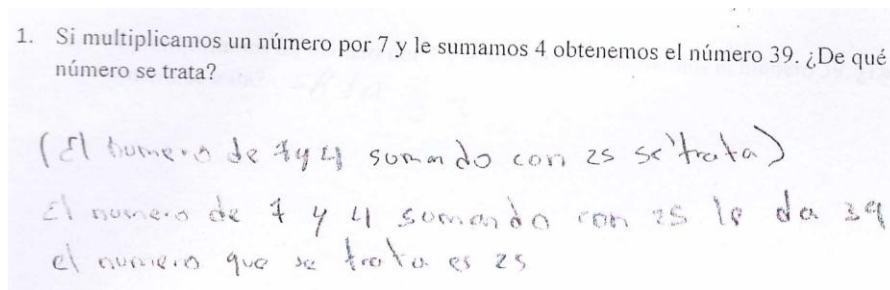 1. Si multiplicamos un número por 7 y le sumamos 4 obtenemos el número 39. ¿De qué
número se trata?
(El numero de 7 y 4 sumando con 25 se trata)
El numero de 7 y 4 sumando con 25 le da 39
el numero que se trata es 25